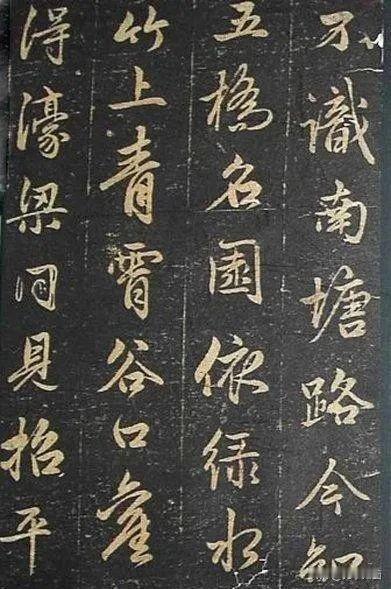 不識南塘路今知
五橋名園依綠水
竹上青霄谷口舊
得濠梁同見招平